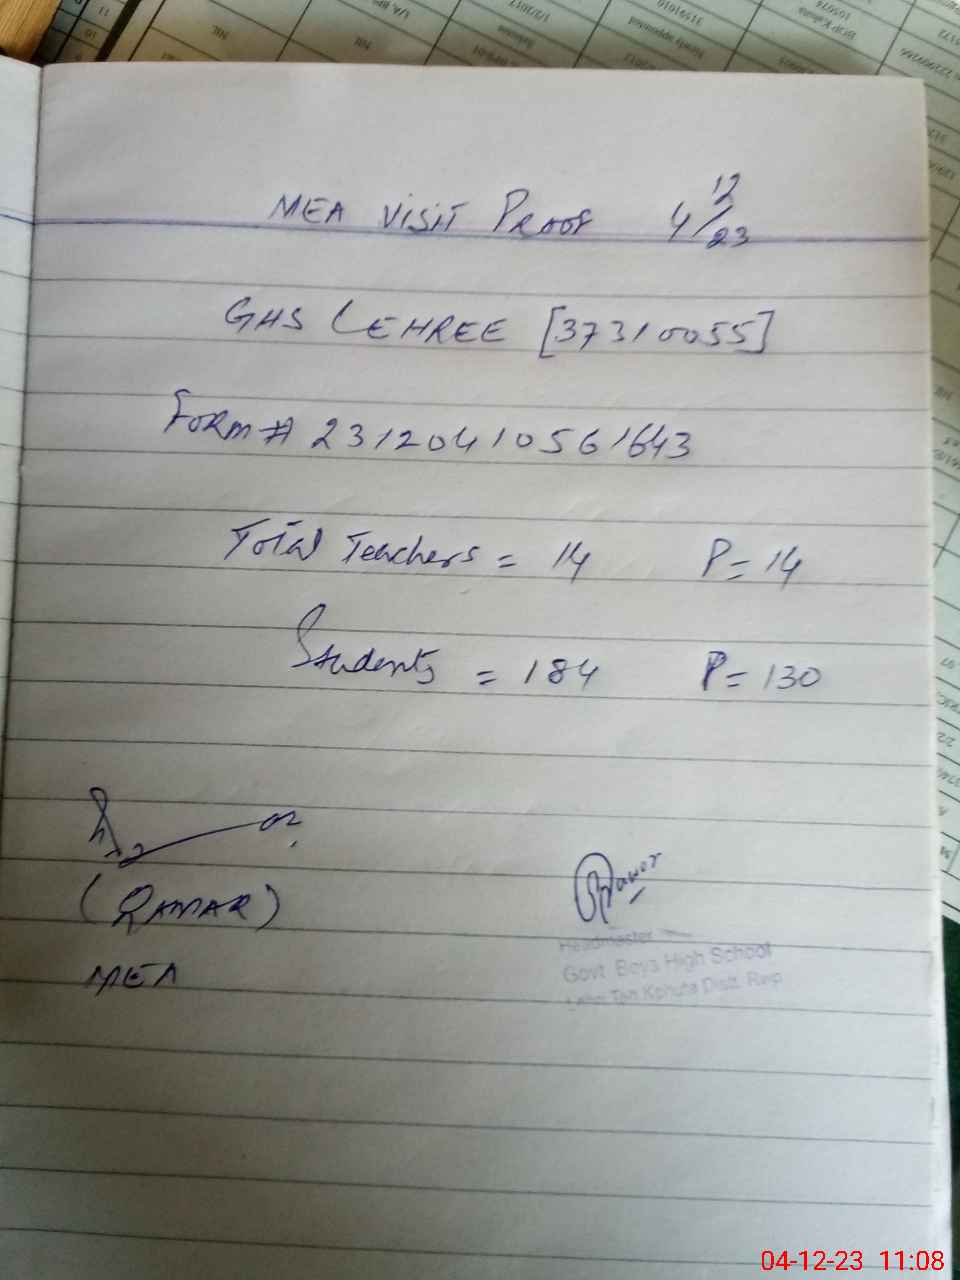 MEA Visit Proof 4/12/23
GHS LEHREE [37310055]
Form # 23120410561643
Total Teachers = 14 P = 14
Students = 184 P = 130
(QAMAR)
MEA
Headmaster
Govt Boys High School
Teh Kahuta Distt. Rwp
04-12-23 11:08